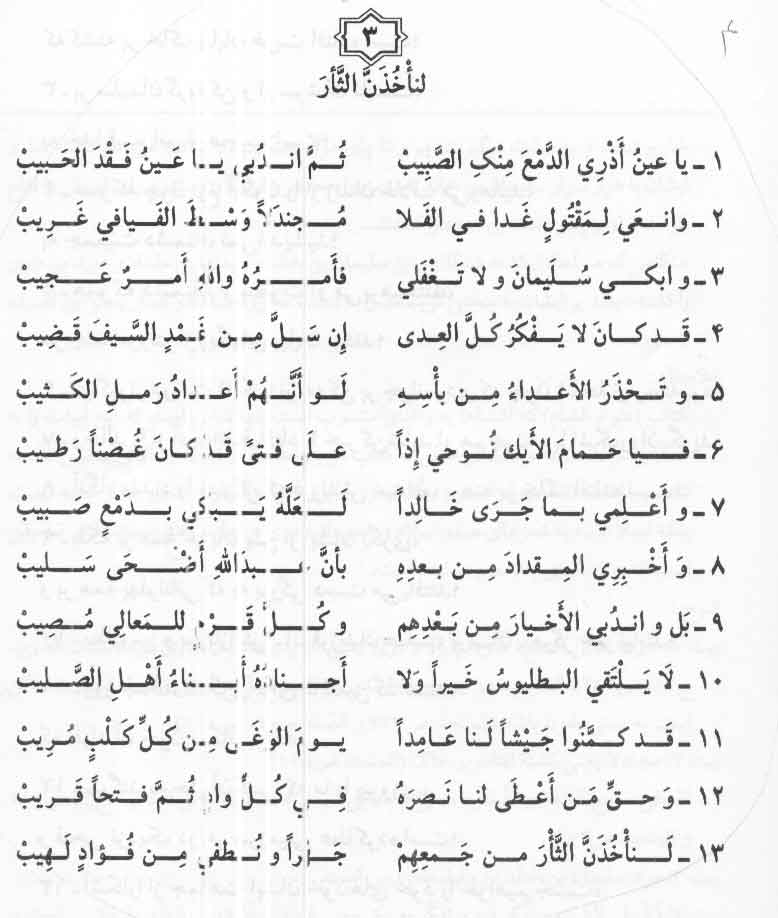 ٣
لنأْخُذَنَّ الثَّأرَ
١ ـ يا عينُ أَذْرِي الدَّمْعَ مِنْكِ الصَّبِيبْ ثُمَّ انـدُبي يـا عـينُ فَـقْدَ الحَبيبْ
٢ ـ وانعَي لِمَقْتُولٍ غَدا في الفَلا مُـجندَلاً وَسْـطَ الفيافي غَريبْ
٣ ـ و ابكـي سُـلَيمانَ و لا تَـغْفَلي فأَمـرُهُ واللهِ أَمـرٌ عـجيبْ
٤ ـ قَـد كـانَ لا يَـفْكُرُ كُـلَّ العِدى إن سَـلَّ مِـنْ غَـمْدِ السَّيفَ قَـضِيبْ
٥ ـ و تَـحْذَرُ الأَعـداءُ مِـن بأْسِـهِ لَـو أَنَّـهُمْ أَعـدادُ رَملِ الكَـثيبْ
٦ ـ فـيا حَـمامَ الأَيكِ نُـوحي إذاً عـلَى فَـتىً قَد كـانَ غُـصْناً رَطيبْ
٧ ـ و أَعْـلِمي بـما جَـرَى خَـالداً لَـعَلَّهُ يَـبكي بِـدَمْعٍ صَـبيبْ
٨ ـ وَ أَخْـبِرِي المِـقدادَ مِـن بـعدِهِ بأنَّ عـبدَالله أَضْـحَى سَـليبْ
٩ ـ بَل و اندُبي الأَخيارَ مِن بَعْدِهِم و كُـلَّ قَـرْمٍ للـمَعالِي مُـصِيبْ
١٠ ـ لَا يَـلْتَقي البـطليوسُ خَـيراً وَلا أَجـنادُهُ أَبـناءُ أَهْـلِ الصَّـليبْ
١١ ـ قَـد كـمَّنُوا جَـيْشاً لَـنا عَـامِداً يـومَ الوَغَـى مِن كُلِّ كَـلْبٍ مُرِيبْ
١٢ ـ وَحـقِّ مَـن أَعْـطَى لنـا نَـصرَهُ فِـي كُـلِّ وادٍ ثُـمَّ فَـتحاً قَـريبْ
١٣ ـ لَـنأخُذَنَّ الثَّأْرَ مـن جَـمعِهمْ جَـهْراً و نُـطفي مِـن فُـؤادٍ لَـهِيبْ